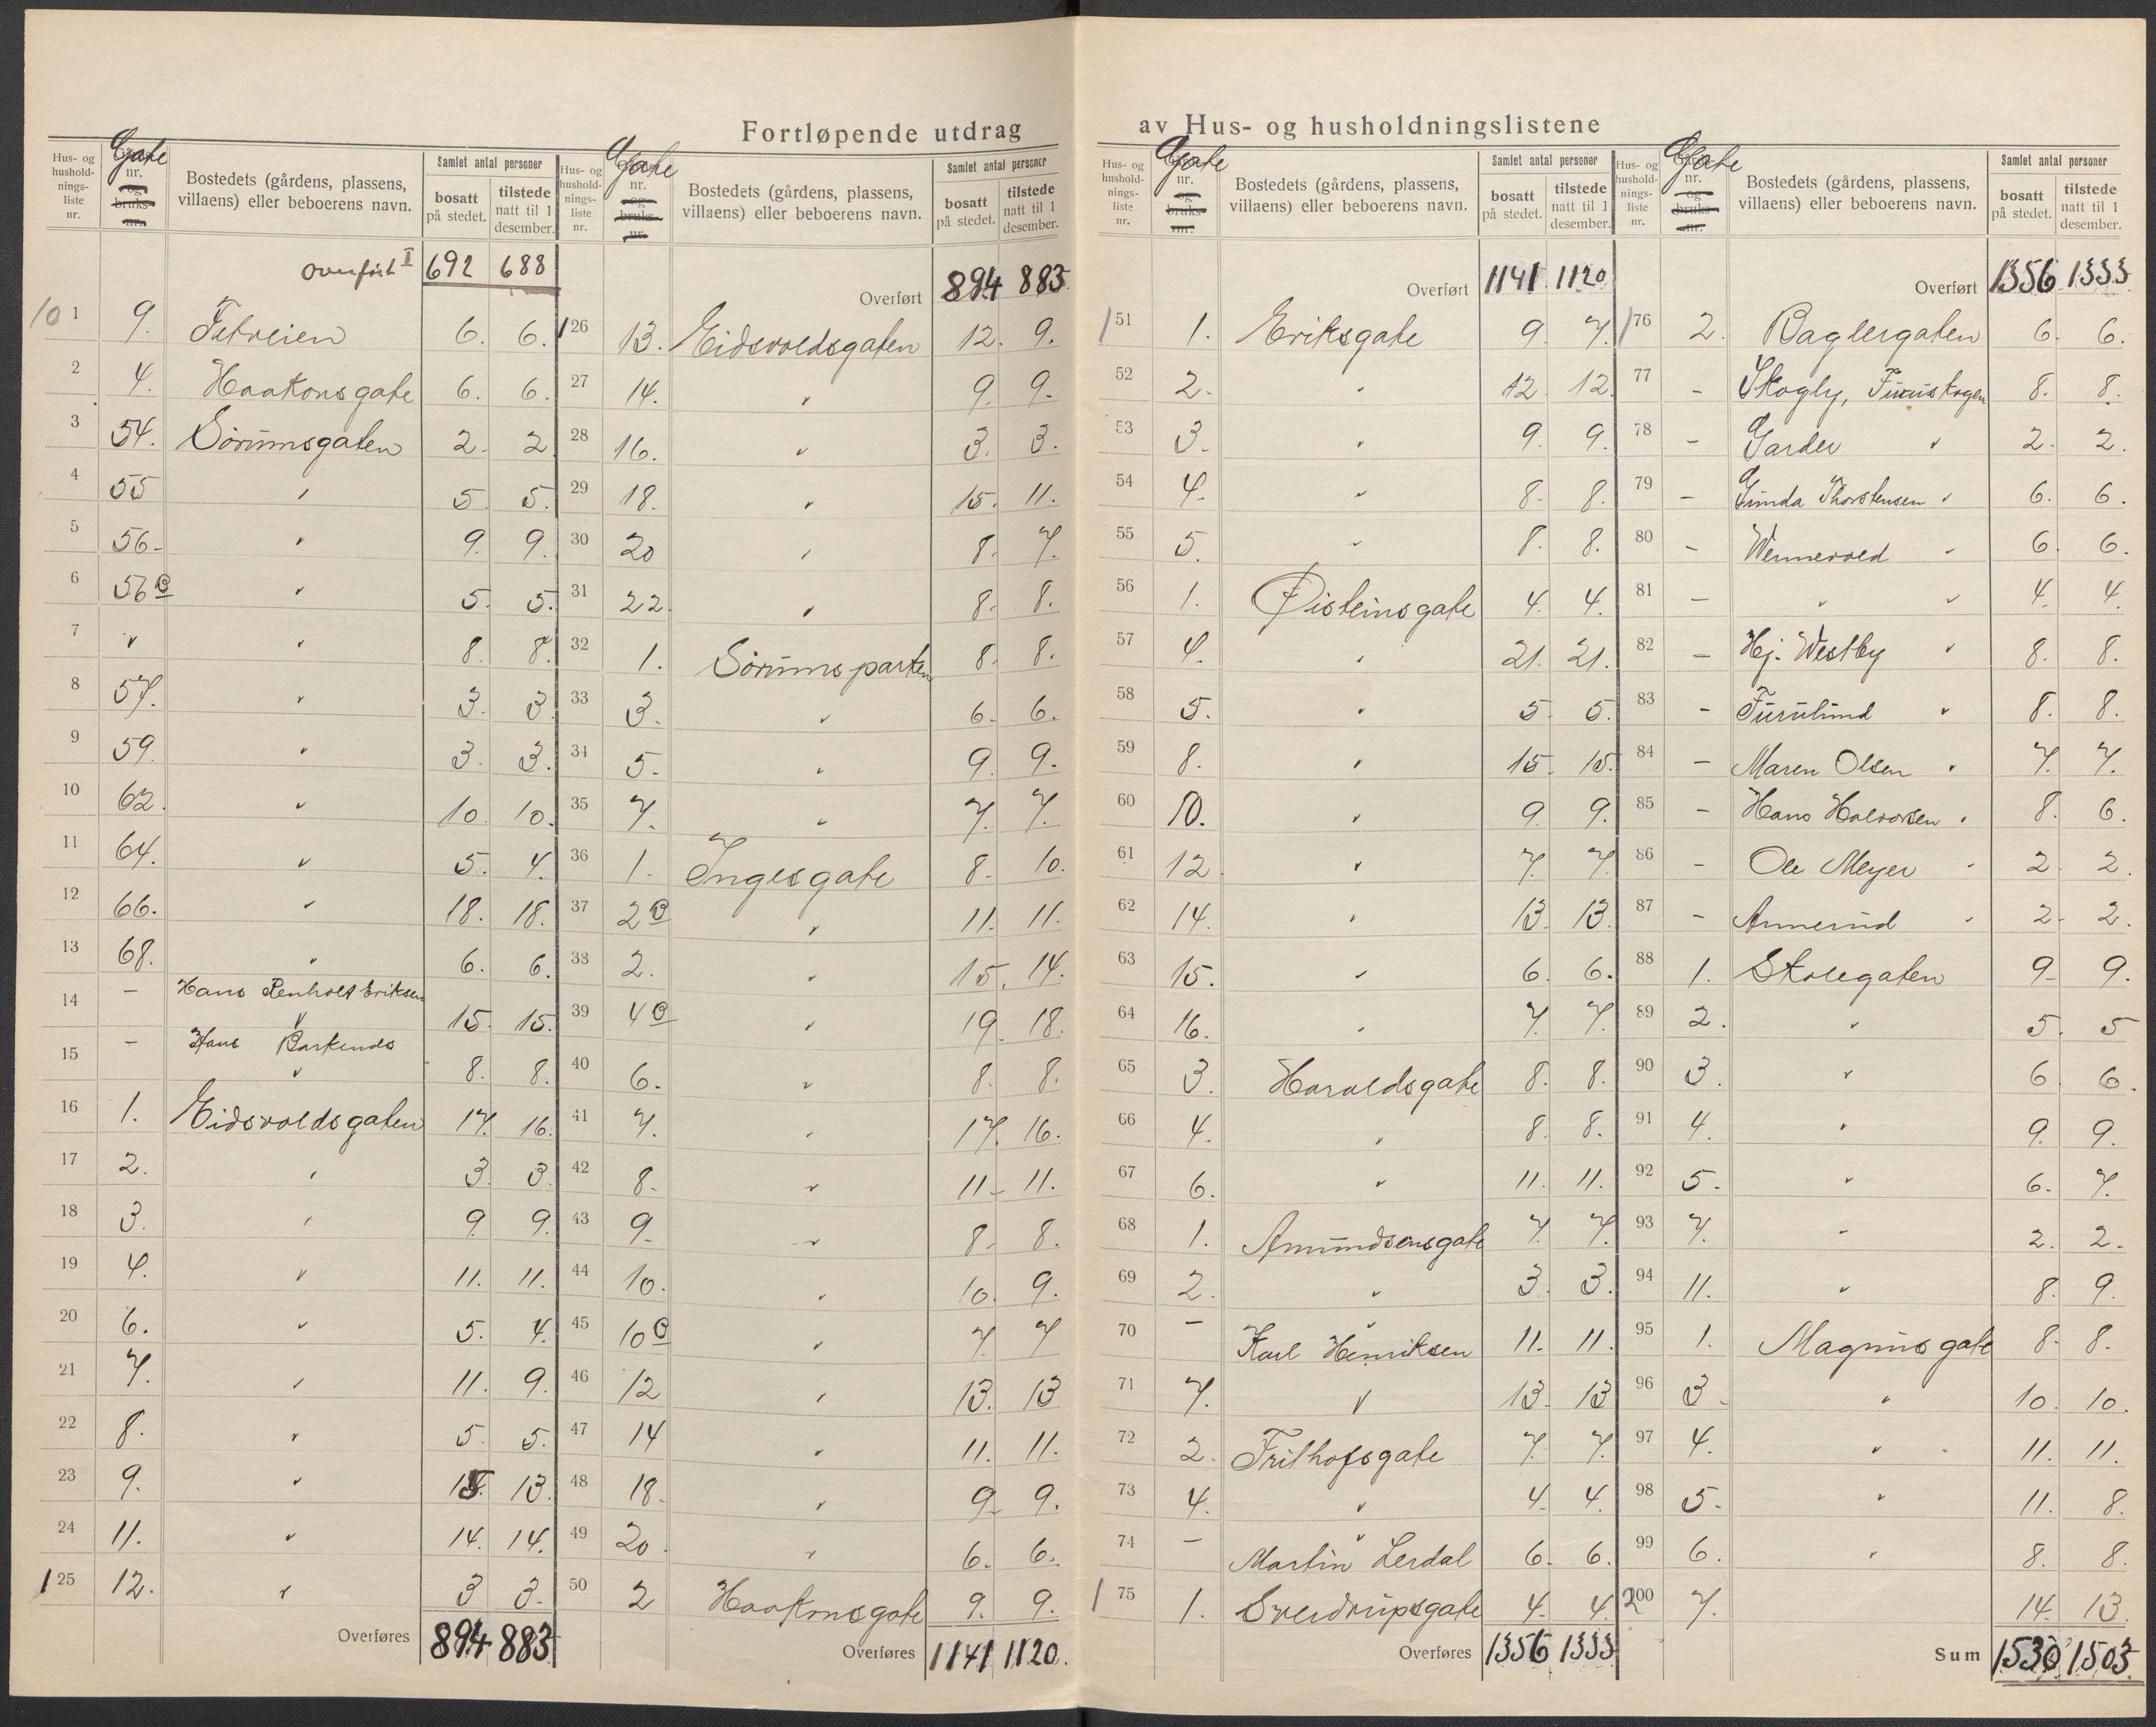 Fortløpende utdrag av Hus- og husholdningslistene
Hus- og hushold-nings-liste nr. | Gate nr. og bruks-nr. | Bostedets (gårdens, plassens, villaens) eller beboerens navn. | Samlet antal personer bosatt på stedet. | tilstede natt til 1 desember.
overført I 692 688
101 9. 6. 6.
2 4. Haakonsgate 6. 6.
3 54. Sørumsgaten 2. 2
4 55 " 5. 5.
5 56- " 9. 9.
6 56B " 5. 5.
7 " " 8. 8.
8 57. " 3. 3
9 59. " 3. 3.
10 62. " 10. 10.
11 64. " 5. 4.
12 66. " 18. 18.
13 68. " 6. 6.
14 - Hans Renholt Eriksen " 15. 15.
15 - Hans " 8. 8.
16 1. Eidsvoldsgaten 17. 16.
17 2. " 3. 3.
18 3. " 9. 9.
19 4. " 11. 11.
20 6. " 5. 4.
21 7. " 11. 9.
22 8. " 5. 5.
23 9. " 15. 13.
24 11. " 14. 14.
125 12. " 3 3.
Overføres 894 883
Hus- og hushold-nings-liste nr. | Gate nr. og bruks-nr. | Bostedets (gårdens, plassens, villaens) eller beboerens navn. | Samlet antal personer bosatt på stedet. | tilstede natt til 1 desember.
Overført 894 883
126 13. Eidsvoldsgaten 12. 9.
27 14. " 9. 9.
28 16. " 3. 3.
29 18. " 15. 11.
30 20 " 8. 7.
31 22. " 8. 8.
32 1. Sørumsparken 8. 8.
33 3. " 6. 6.
34 5. " 9. 9.
35 7. " 7. 7.
36 1. Ingesgate 8. 10.
37 2B " 11. 11.
38 2. " 15. 14.
39 4B " 19. 18.
40 6. " 8. 8.
41 7. " 17. 16.
42 8. " 11. 11.
43 9. " 8. 8.
44 10. " 10. 9.
45 10B " 7. 7
46 12 " 13. 13
47 14 " 11. 11.
48 18. " 9. 9.
49 20. " 6. 6.
50 2 Haakonsgate 9. 9.
Overføres 1141 1120.
Hus- og hushold-nings-liste nr. | Gate nr. og bruks-nr. | Bostedets (gårdens, plassens, villaens) eller beboerens navn. | Samlet antal personer bosatt på stedet. | tilstede natt til 1 desember.
Overført 1141 1120
151 1. Eriksgate 9. 7.
52 2. " 12. 12.
53 3. " 9. 9.
54 4. " 8. 8.
55 5. " 8. 8.
56 1. Øisteinsgate 4. 4.
57 4. " 21. 21.
58 5. " 5. 5.
59 8. " 15. 15.
60 10. " 9. 9.
61 12. " 7. 7.
62 14. " 13. 13.
63 15. " 6. 6.
64 16. " 7. 7.
65 3. Haraldsgate 8. 8.
66 4. " 8. 8.
67 6. " 11. 11.
68 1. Amundsensgate 7. 7.
69 2. " 3. 3.
70 - " Karl Henriksen 11. 11.
71 7. " 13. 13
72 2. Frithofsgate 7. 7.
73 4. " 4. 4.
74 - " Martin Lerdal 6. 6.
175 1. Sverdrupsgate 4. 4.
Overføres 1356 1333
Hus- og hushold-nings-liste nr. | Gate nr. og bruks-nr. | Bostedets (gårdens, plassens, villaens) eller beboerens navn. | Samlet antal personer bosatt på stedet. | tilstede natt til 1 desember.
Overført 1356 1333
176 2. Baglergaten 6. 6.
77 - Skogly, 8. 8.
78 - Garder " 2. 2.
79 - Gunda Thorstensen " 6. 6.
80 - Wennevold " 6. 6.
81 - " " 4. 4.
82 - Hj. Westby " 8. 8.
83 - Furulund " 8. 8.
84 - Maren Olsen " 7. 7.
85 - Hans Halvorsen " 8. 6.
86 - Ole Meyer " 2. 2.
87 - Annerud " 2. 2.
88 1. Skolegaten 9. 9.
89 2. " 5. 5
90 3. " 6. 6.
91 4. " 9. 9.
92 5. " 6. 7.
93 7. " 2. 2.
94 11. " 8. 9.
95 1. Magnusgate 8. 8.
96 3. " 10. 10.
97 4. " 11. 11.
98 5. " 11. 8.
99 6. " 8. 8.
200 7. 14. 13.
Sum 1530 1503